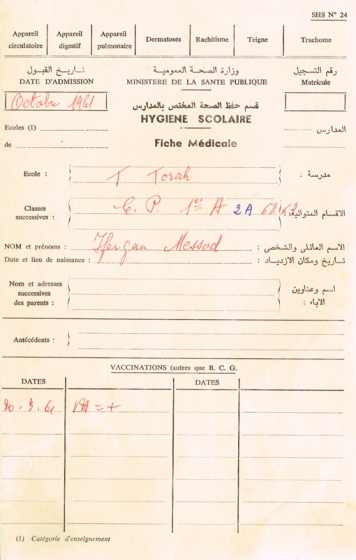 SHS N° 24
Appareil circulatoire
Appareil digestif
Appareil pulmonaire
Dermatoses
Rachitisme
Teigne
Trachome
تاريخ القبول
DATE D'ADMISSION
وزارة الصحة العمومية
MINISTERE DE LA SANTE PUBLIQUE
رقم التسجيل
Matricule
Octobre 1961
قسم حفظ الصحة المختص بالمدارس
HYGIENE SCOLAIRE
Ecoles (1)
المدارس
de
Fiche Médicale
Ecole : T Torah مدرسة :
Classes successives : C. P. 1er A 2A 62 63 الاقسام المتوالية
NOM et prénoms : Messod الاسم العائلي والشخصي :
Date et lieu de naissance : تاريخ ومكان الازدياد :
Nom et adresses successives des parents :
اسم وعناوين الاباء :
Antécédents :
VACCINATIONS (autres que B. C. G.
DATES
DATES
(1) Catégorie d'enseignement